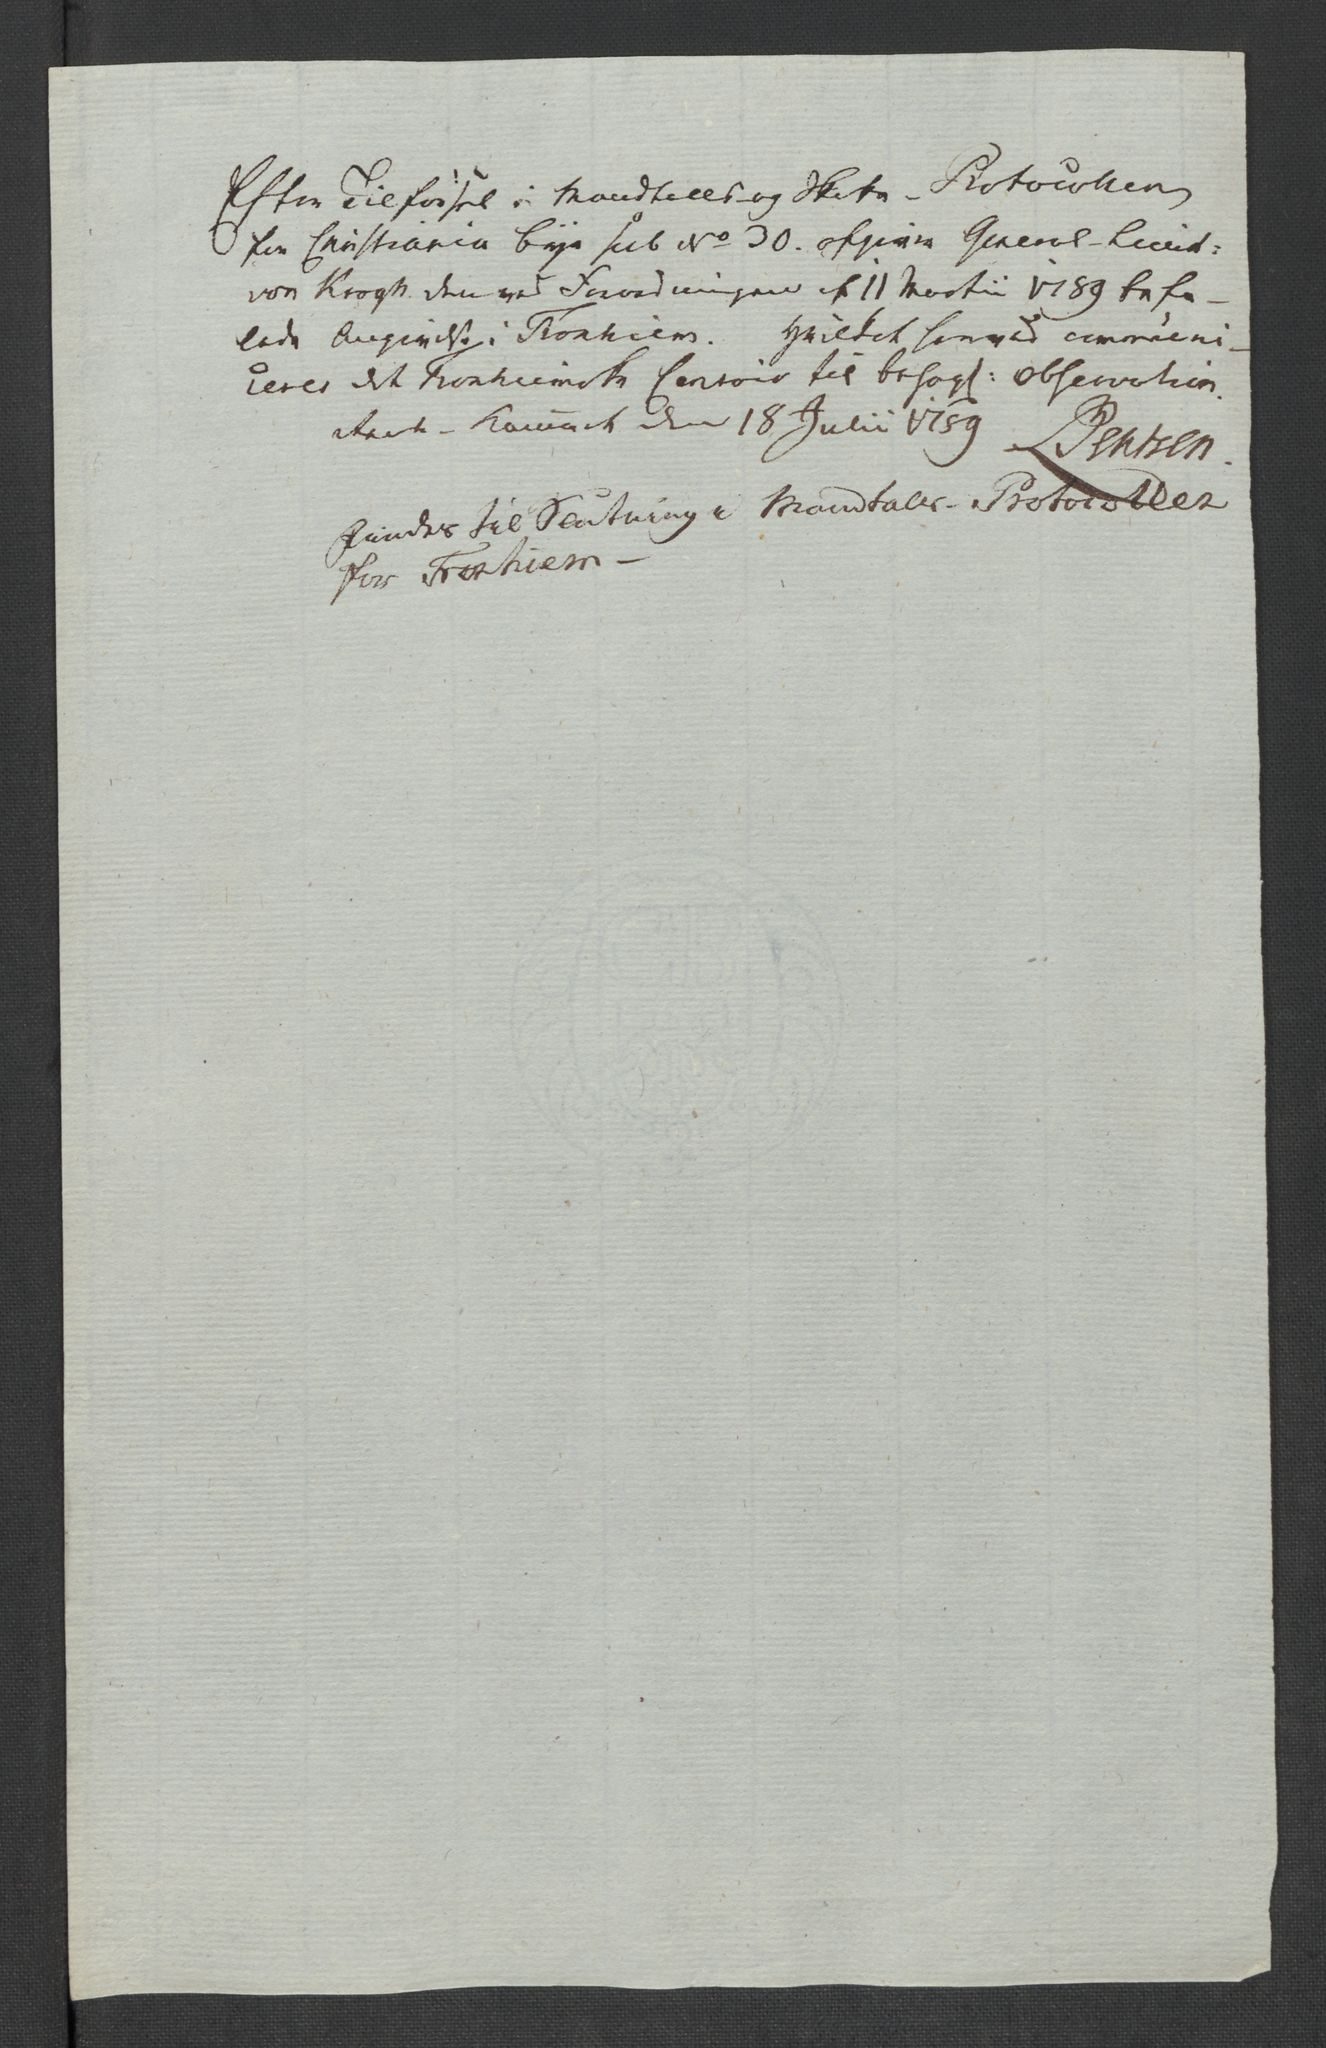 Efter Tilførsel i Mandtalls og Skatte-Protocollen
for Christiania Bye sub No 30. afgiver General-Lieut:
von Krogh den ved Forordningen af 11 Martii 1789 befa-
lede Angivelse i Tronhiem. Hvilket herved commūni-
ceres det Tronhiemske Contoir til behagl: observation.
Skatte-Kammeret den 18 Julii 1789 LBentsen.
findes til Slutning i Mandtals-Protocollen
for Tronhiem-